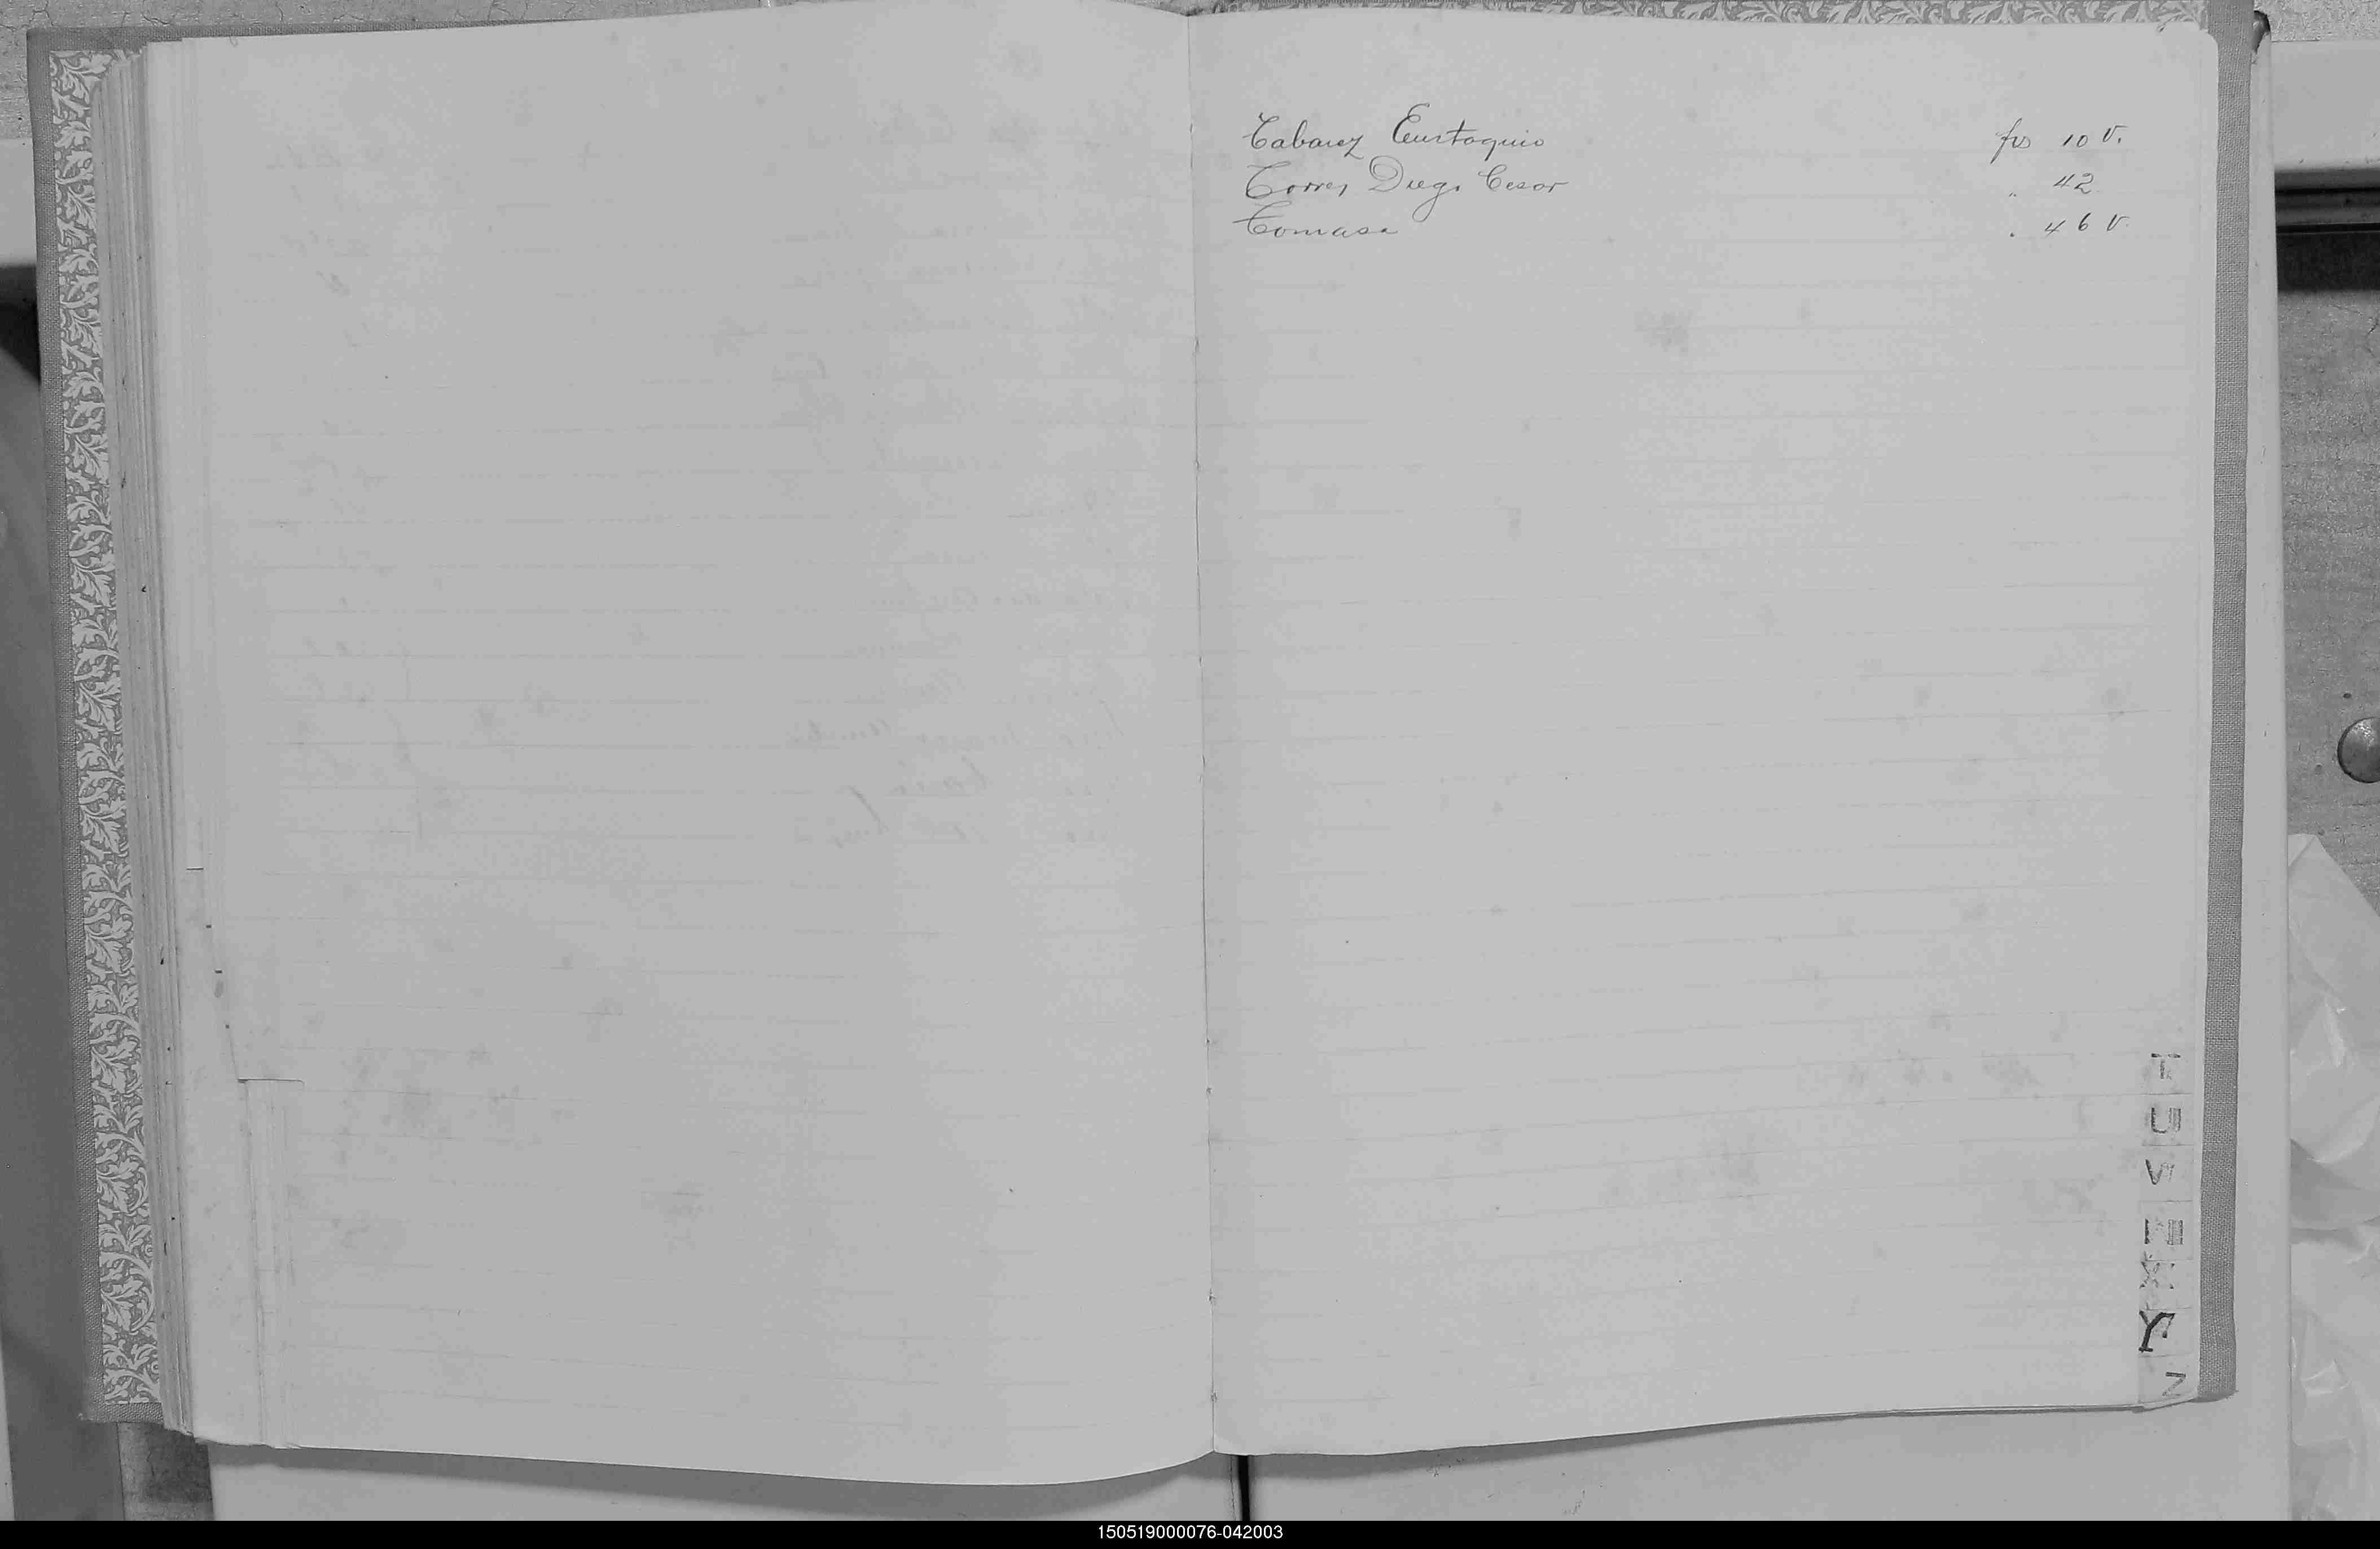 Tabarez Eustaquio fs 10 v.
Torres Diego Cesar " 42
Tomasa " 46 v.
T
U
V
X
Y
Z
150519000076-042003